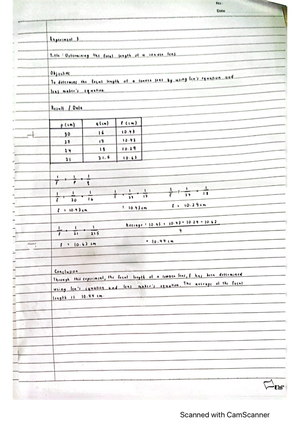 No:
Date
Experiment 3
Title : Determining the focal length of a convex lens
Objective
To determine the focal length of a convex lens by using len's equation and
lens maker's equation
Result / Data
p (cm) q (cm) f (cm)
30 16 10.43
19 10.43
24 18 10.29
21 21.5 10.63
1/f = 1/p + 1/q
1/f = 1/30 + 1/16
f = 10.43cm = 10.43cm f = 10.29cm
1/f = 1/21 + 1/21.5 Average = 10.43 + 10.43 + 10.29 + 10.63
4
f = 10.63 cm = 10.44 cm
Conclusion
Through this experiment, the focal length of a convex lens, f has been determined
using len's equation and lens maker's equation. The average of the focal
length is 10.44 cm.
Scanned with CamScanner